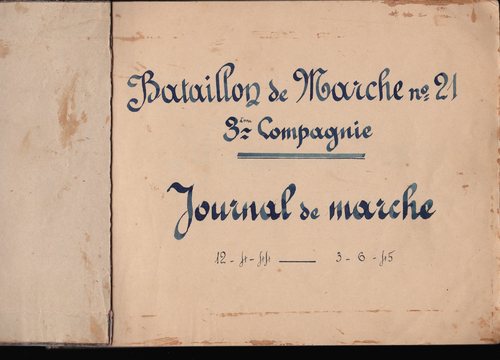 Bataillon de Marche nº 21
3ème Compagnie
Journal de marche
12 - 4 - 44 — 3 - 6 - 45